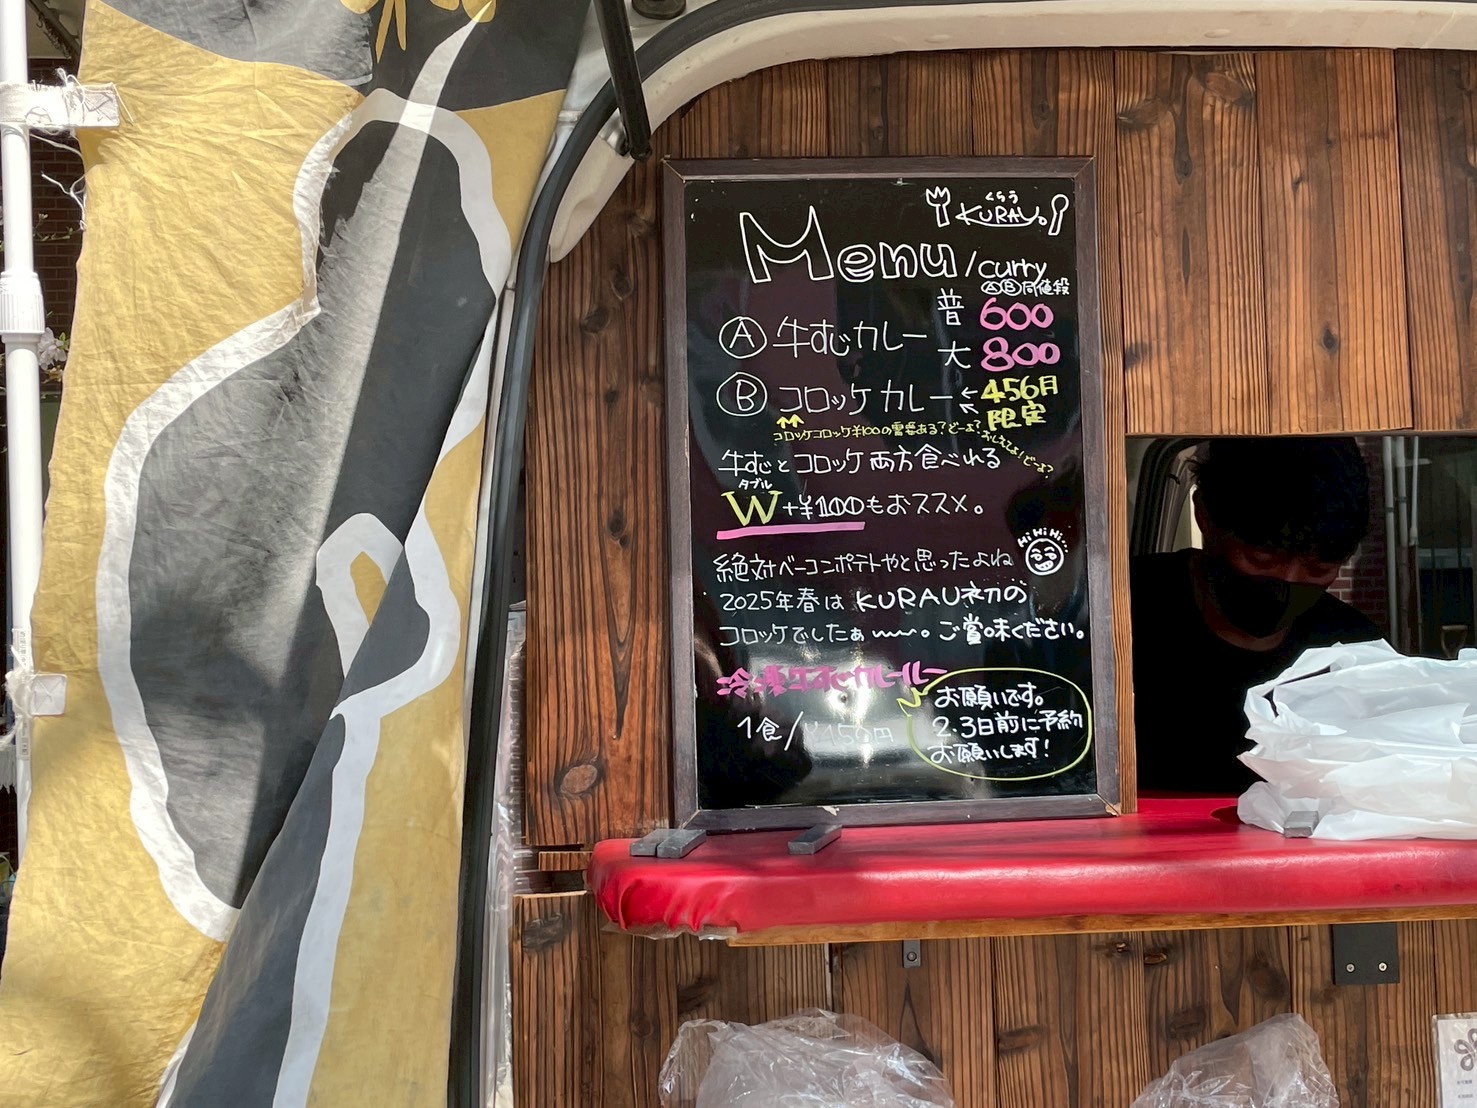 くらう
KURAU。
Menu/curry
ⒶⒷ同値段
普 600
Ⓐ 牛すじカレー
大 800
Ⓑ コロッケカレー ← 456月
限定
コロッケコロッケ¥100の需要ある?どーよ?おしえてよ!どーよ?
牛すじとコロッケ両方食べれる
ダブル
W+¥100もおススメ。
Hi Hi Hi..
絶対ベーコンポテトやと思ったよね
2025年春は KURAU初の
コロッケでしたぁ〜〜。ご賞味ください。
冷凍牛すじカレールー
1食/¥450円
お願いです。
2.3日前に予約
お願いします!